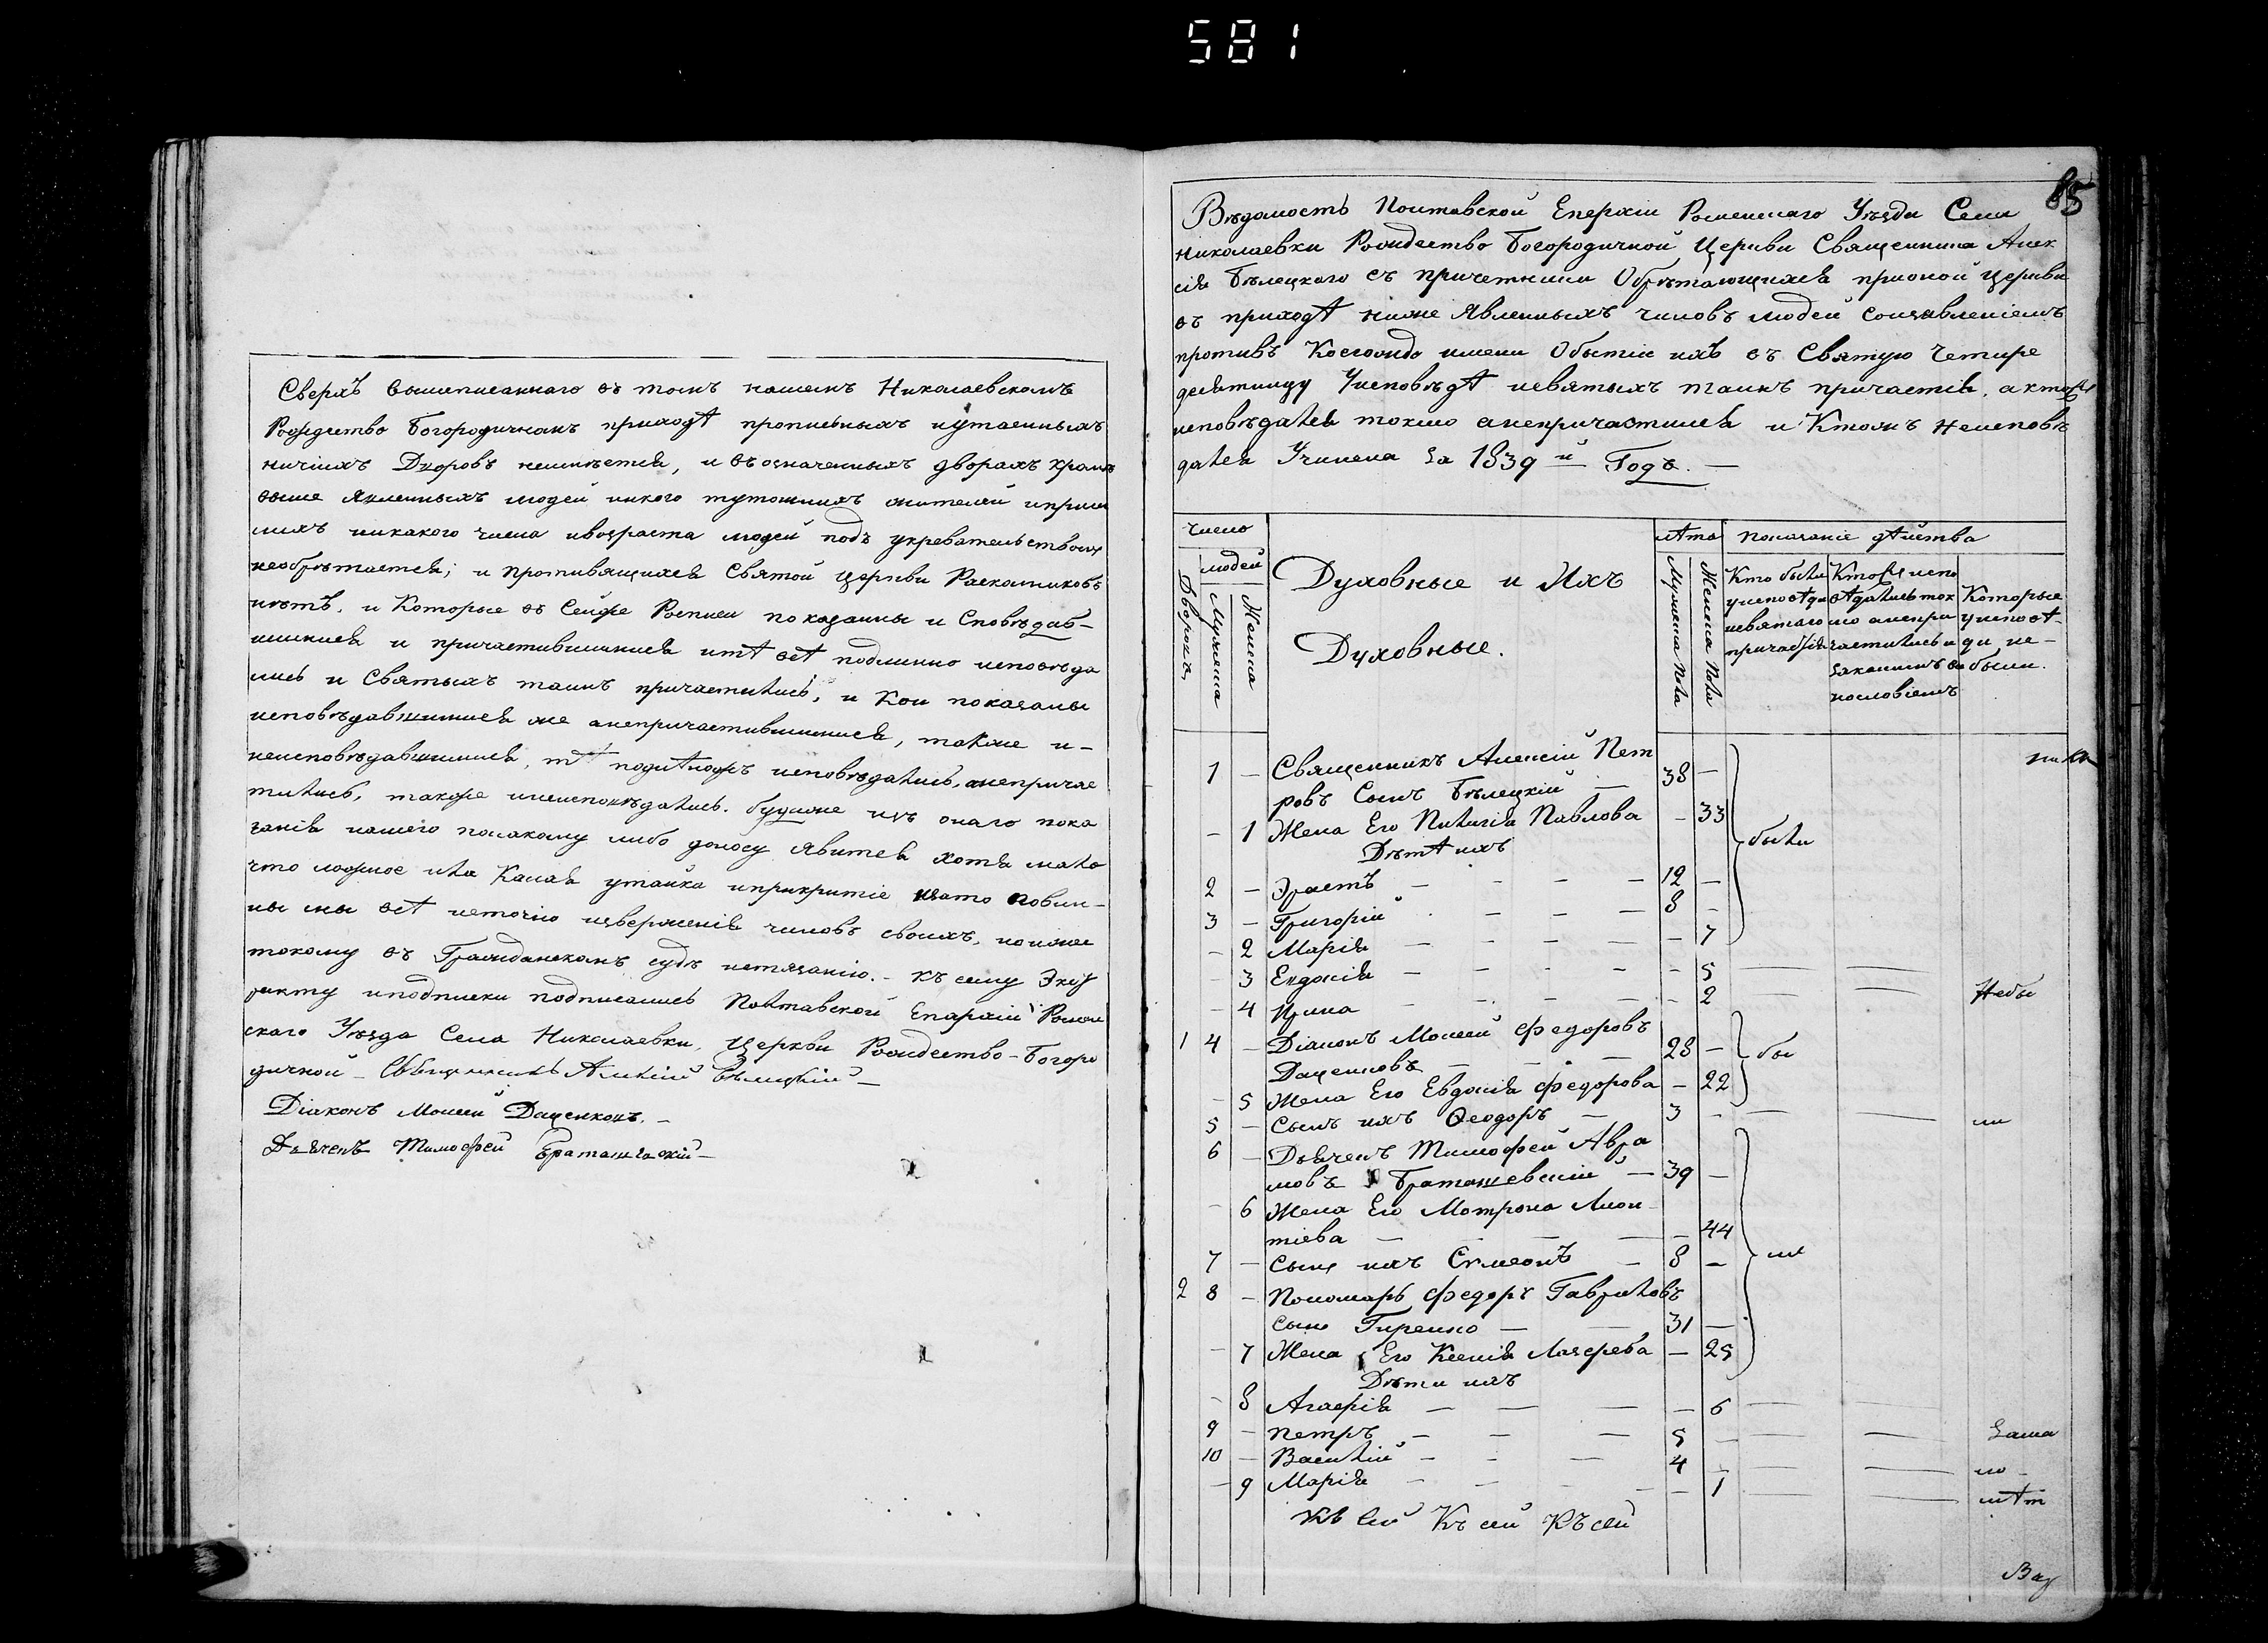 581
Сверхъ вышеписаннаго въ томъ нашемъ Николаевскомъ
Рождество Богородичномъ приходѣ прописныхъ иутаенныхъ
ничіихъ Дворовъ неимѣется, и въозначенныхъ дворахъ кромѣ
выше явленныхъ людей никого тутошнихъ жителей иприш
лихъ никакого числа ивозраста людей подъ укревательствомъ
необрѣтается; и противящихся Святой церкви Раскольниковъ
нѣтъ. и Которые въ Сейже Росписи показанны и Сповѣдав-
шимися и причастившимися итѣ всѣ подлинно исповѣда
лись и Святыхъ таинъ причастились, и Кои показаны
исповѣдавшимися же анепричастившимися, также и-
неисповѣдавшимися, тѣ исповѣдались, анепричас
тились, также инеисповѣдались. будеже изъ онаго пока
занія нашего посакому либо доносу явится хотя мало
что ложное или Какая утайка иприкритіе изато повин-
ны мы всѣ неточію изверженія чиновъ своихъ, ноиже
токому въ Гражданскомъ судѣ истязанію. - къ сему Экс
ракту иподписки подписались Полтавской Епархіи Ромен
скаго Уѣзда Села Николаевки, Церкви Рождество-Богоро
дичной - Священникъ Алексій Бѣлецкій -
Діаконъ Моисей Даценковъ. -
Дьячекъ Тимофей Браташевскій -
85
Вѣдомость Полтавской Епархіи Роменскаго Уѣзда Села
Николаевки Рождество Богородичной Церкви Священника Алек
сія Бѣлецкаго съ причетники Обрѣтающихся прионой церкви
въ приходѣ ниже Явленныхъ чиновъ людей сонзявленіемъ
противъ Коегождо имени Обытіи ихъ въ Святую Четире
десятницу Уисповѣдѣ исвятыхъ таинъ причастія. актоже
исповѣдался токмо анепричастился и Ктожъ неисповѣ
дался Учинена за 1839й Годъ. -
число
людей
Дворовъ
Мужеска
Женска
Духовные и Ихъ
Духовные.
лѣта
Мужеска Пола
Женска Пола
показаніе дѣйства
Кто были
уисповѣди
исвятаго
причастія
Ктоже испо
вѣдались ток
мо анепри
частились и
закакимъ ви
нословіемъ
Которые
уисповѣ-
ди не-
были.
1 - Священникъ Алексій Пет
ровъ Сынъ Бѣлецкій - 38 -
- 1 Жена Его Пелагія Павлова - 33
были
Дѣтѣ ихъ
2 - Эрастъ - - - - 12 -
3 - Григорій - - - 8 -
- 2 Марія - - - - - 7
- 3 Евдокія - - - - - 5
- 4 Ирина - - - - - 2 Небы
1 4 - Діаконъ Моисей Федоровъ
Даценковъ - - - 28 - бы
- 5 Жена Его Евдокія Федорова - 22
5 - Сынъ ихъ Феодоръ - 3 - ли
6 - Дьячекъ Тимофей Авра
мовъ Браташевскій - 39 -
- 6 Жена Его Мотрона Леон
тіева - - - - - 44
7 - Сынъ ихъ Симеонъ - 8 - ли
2 8 - Пономарь Федоръ Гавриловъ
сынъ Гиренко - - 31 -
- 7 Жена Его Ксенія Лазерева - 25
Дѣти ихъ
- 8 Агафія - - - - 6
9 - Петръ - - - 5 - Зама
10 - Василій - - - 4 - ло -
- 9 Марія - - - - 1 лѣт
Къ сей Къ сей Къ сей